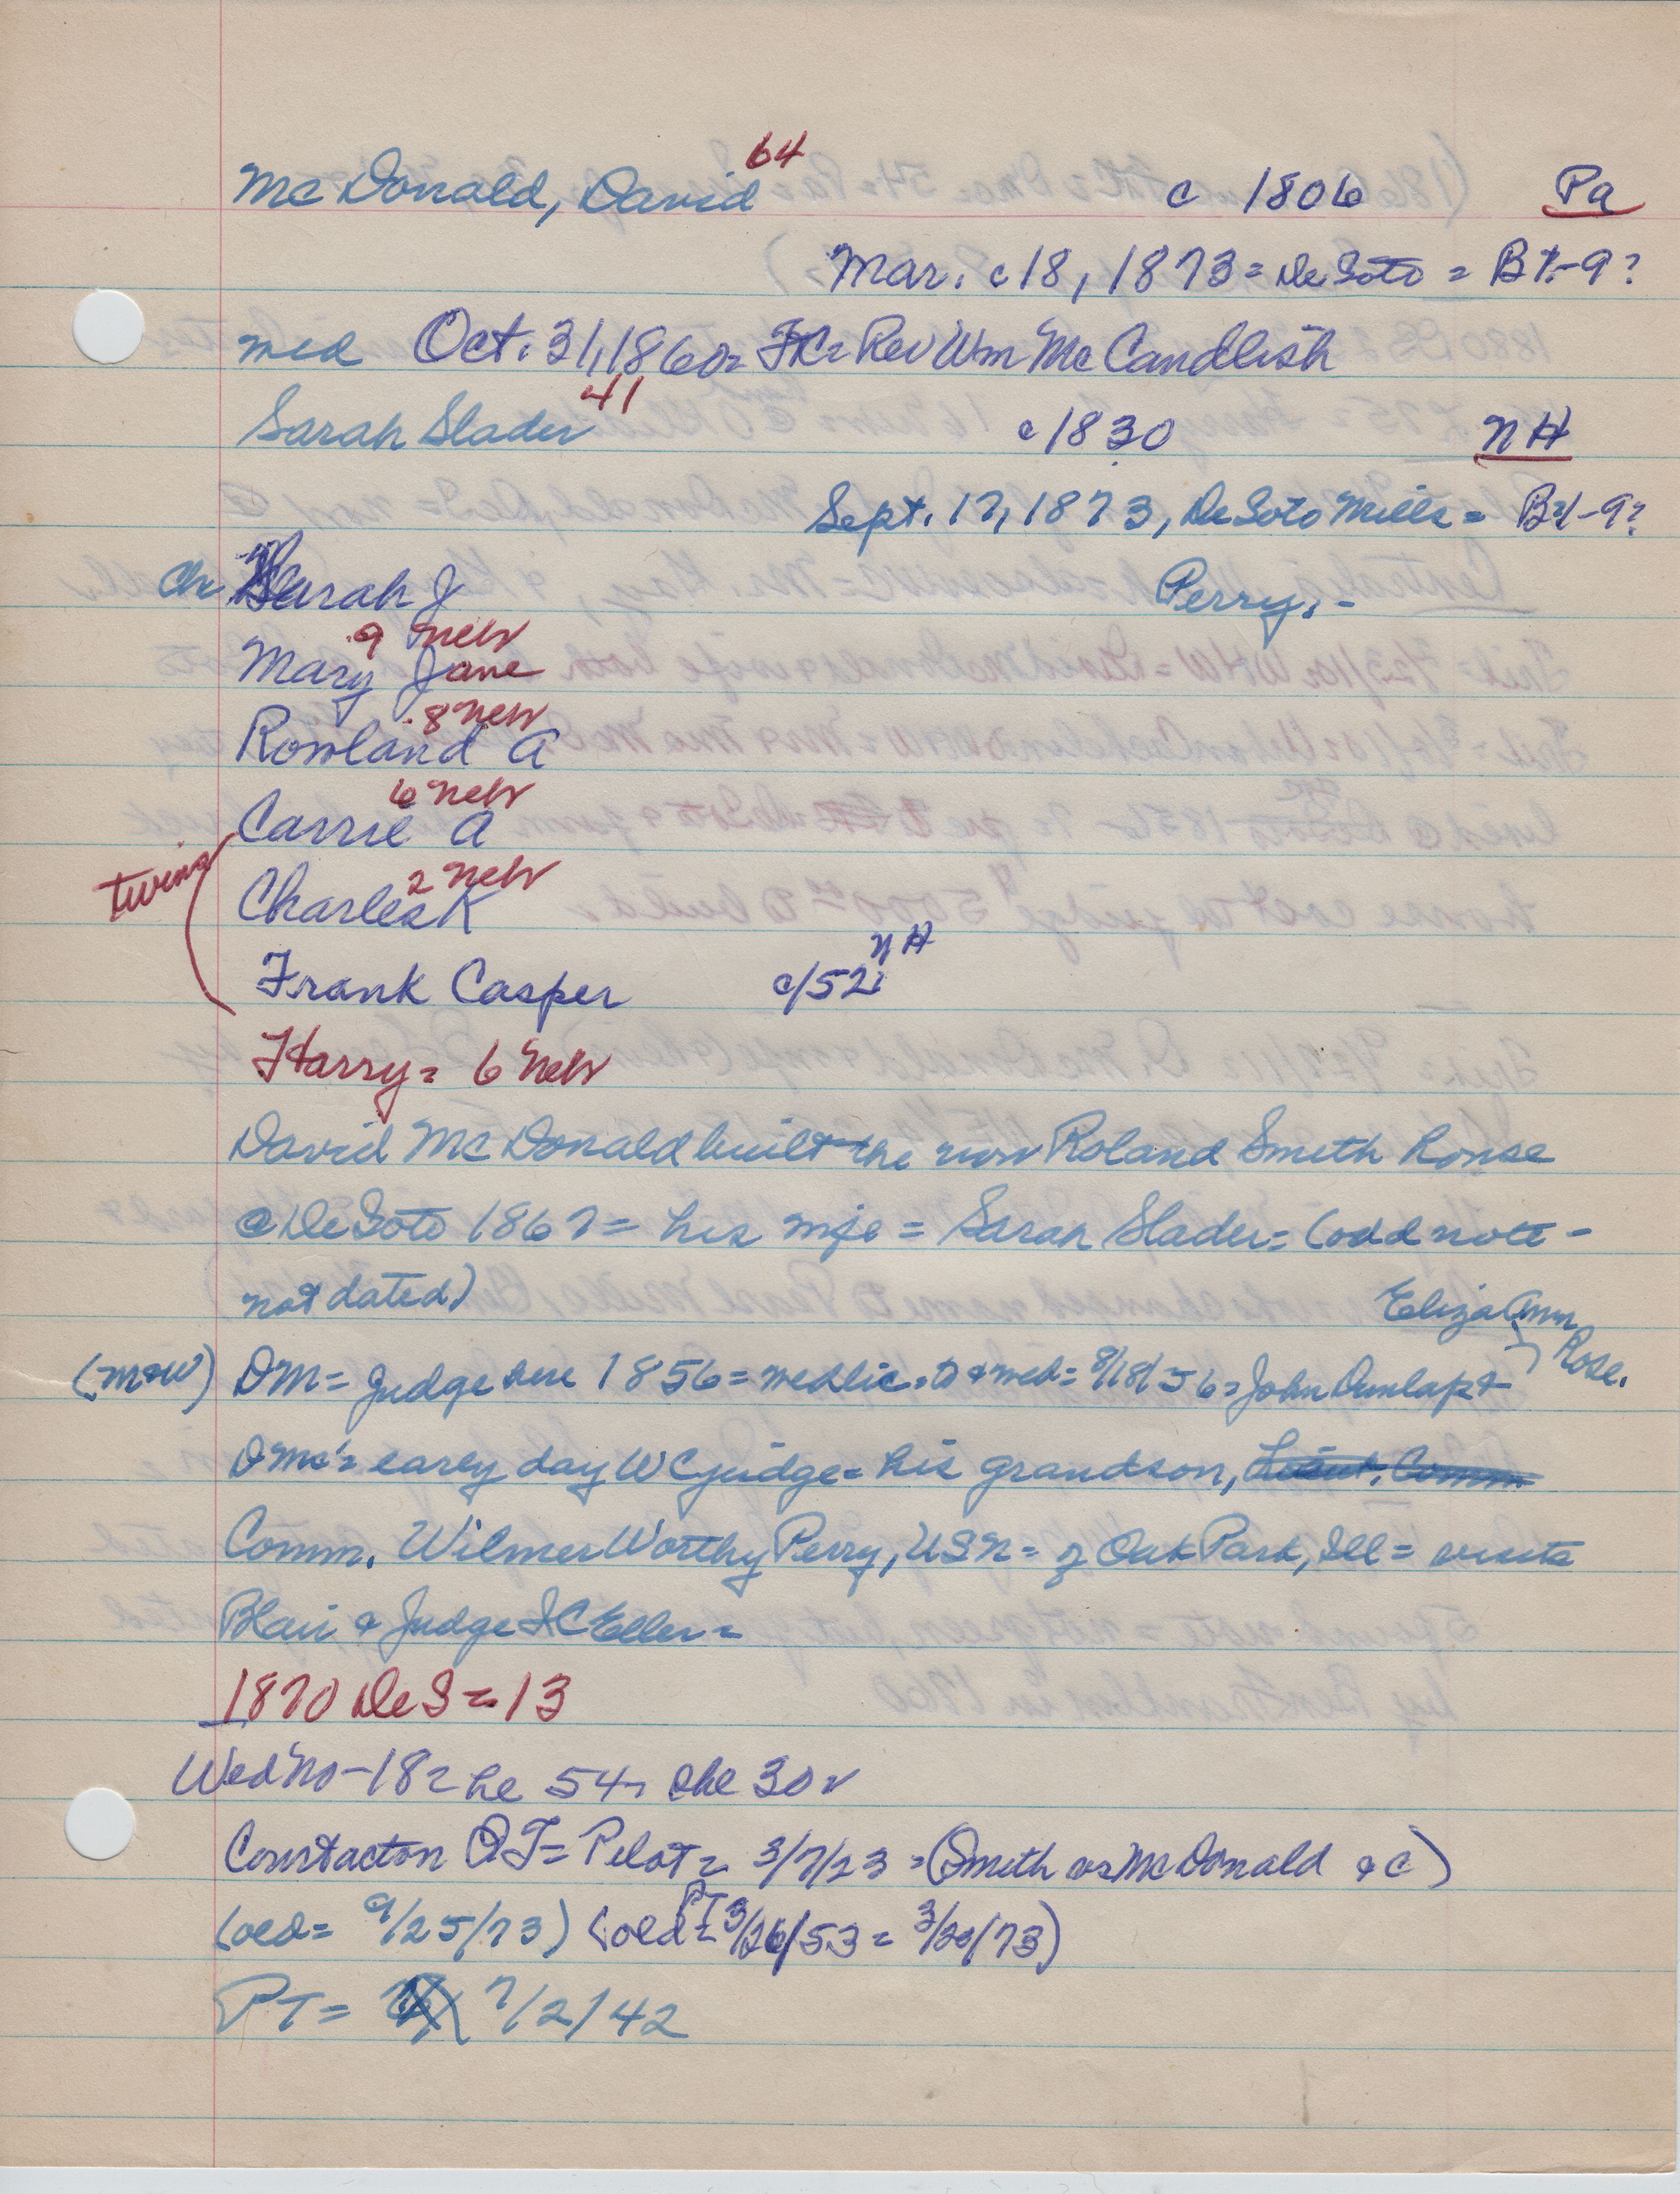 64
McDonald, David c 1806 Pa
Mar. c18, 1873 = DeSoto = B
med Oct. 31, 1860 = Rev Wm McCandlish
41
Sarah Slader c1830 NH
Sept. 17, 1873, DeSoto Mills =
Ch Sarah J Perry, -
9 Neb
Mary Jane
8 Neb
Rowland A
6 Neb
Carrie A
twins
2 Neb
Charles K
NH
Frank Casper c/52
Harry = 6 Neb
David McDonald built the now Roland Smith house
@ DeSoto 1867 = his wife = Sarah Slader = (odd note -
not dated) Eliza Ann
Rose.
(mow) DM = Judge here 1856 = med lic. to & med = 8/18/56 = John Dunlap &
DMc = early day WC judge = his grandson, Lieut. Comm
Comm. Wilmer Worthy Perry, USN = of Oak Park, Ill = visits
Blair & Judge IC Eller =
1870 DeS = 13
Wed No - 18 = he 54, she 30
QT = Pilot = 3/7/23 = (Smith vs McDonald & c)
PT
(old = 9/25/73) (old = 3/26/53 = 3/20/73)
PT = 7/2/42